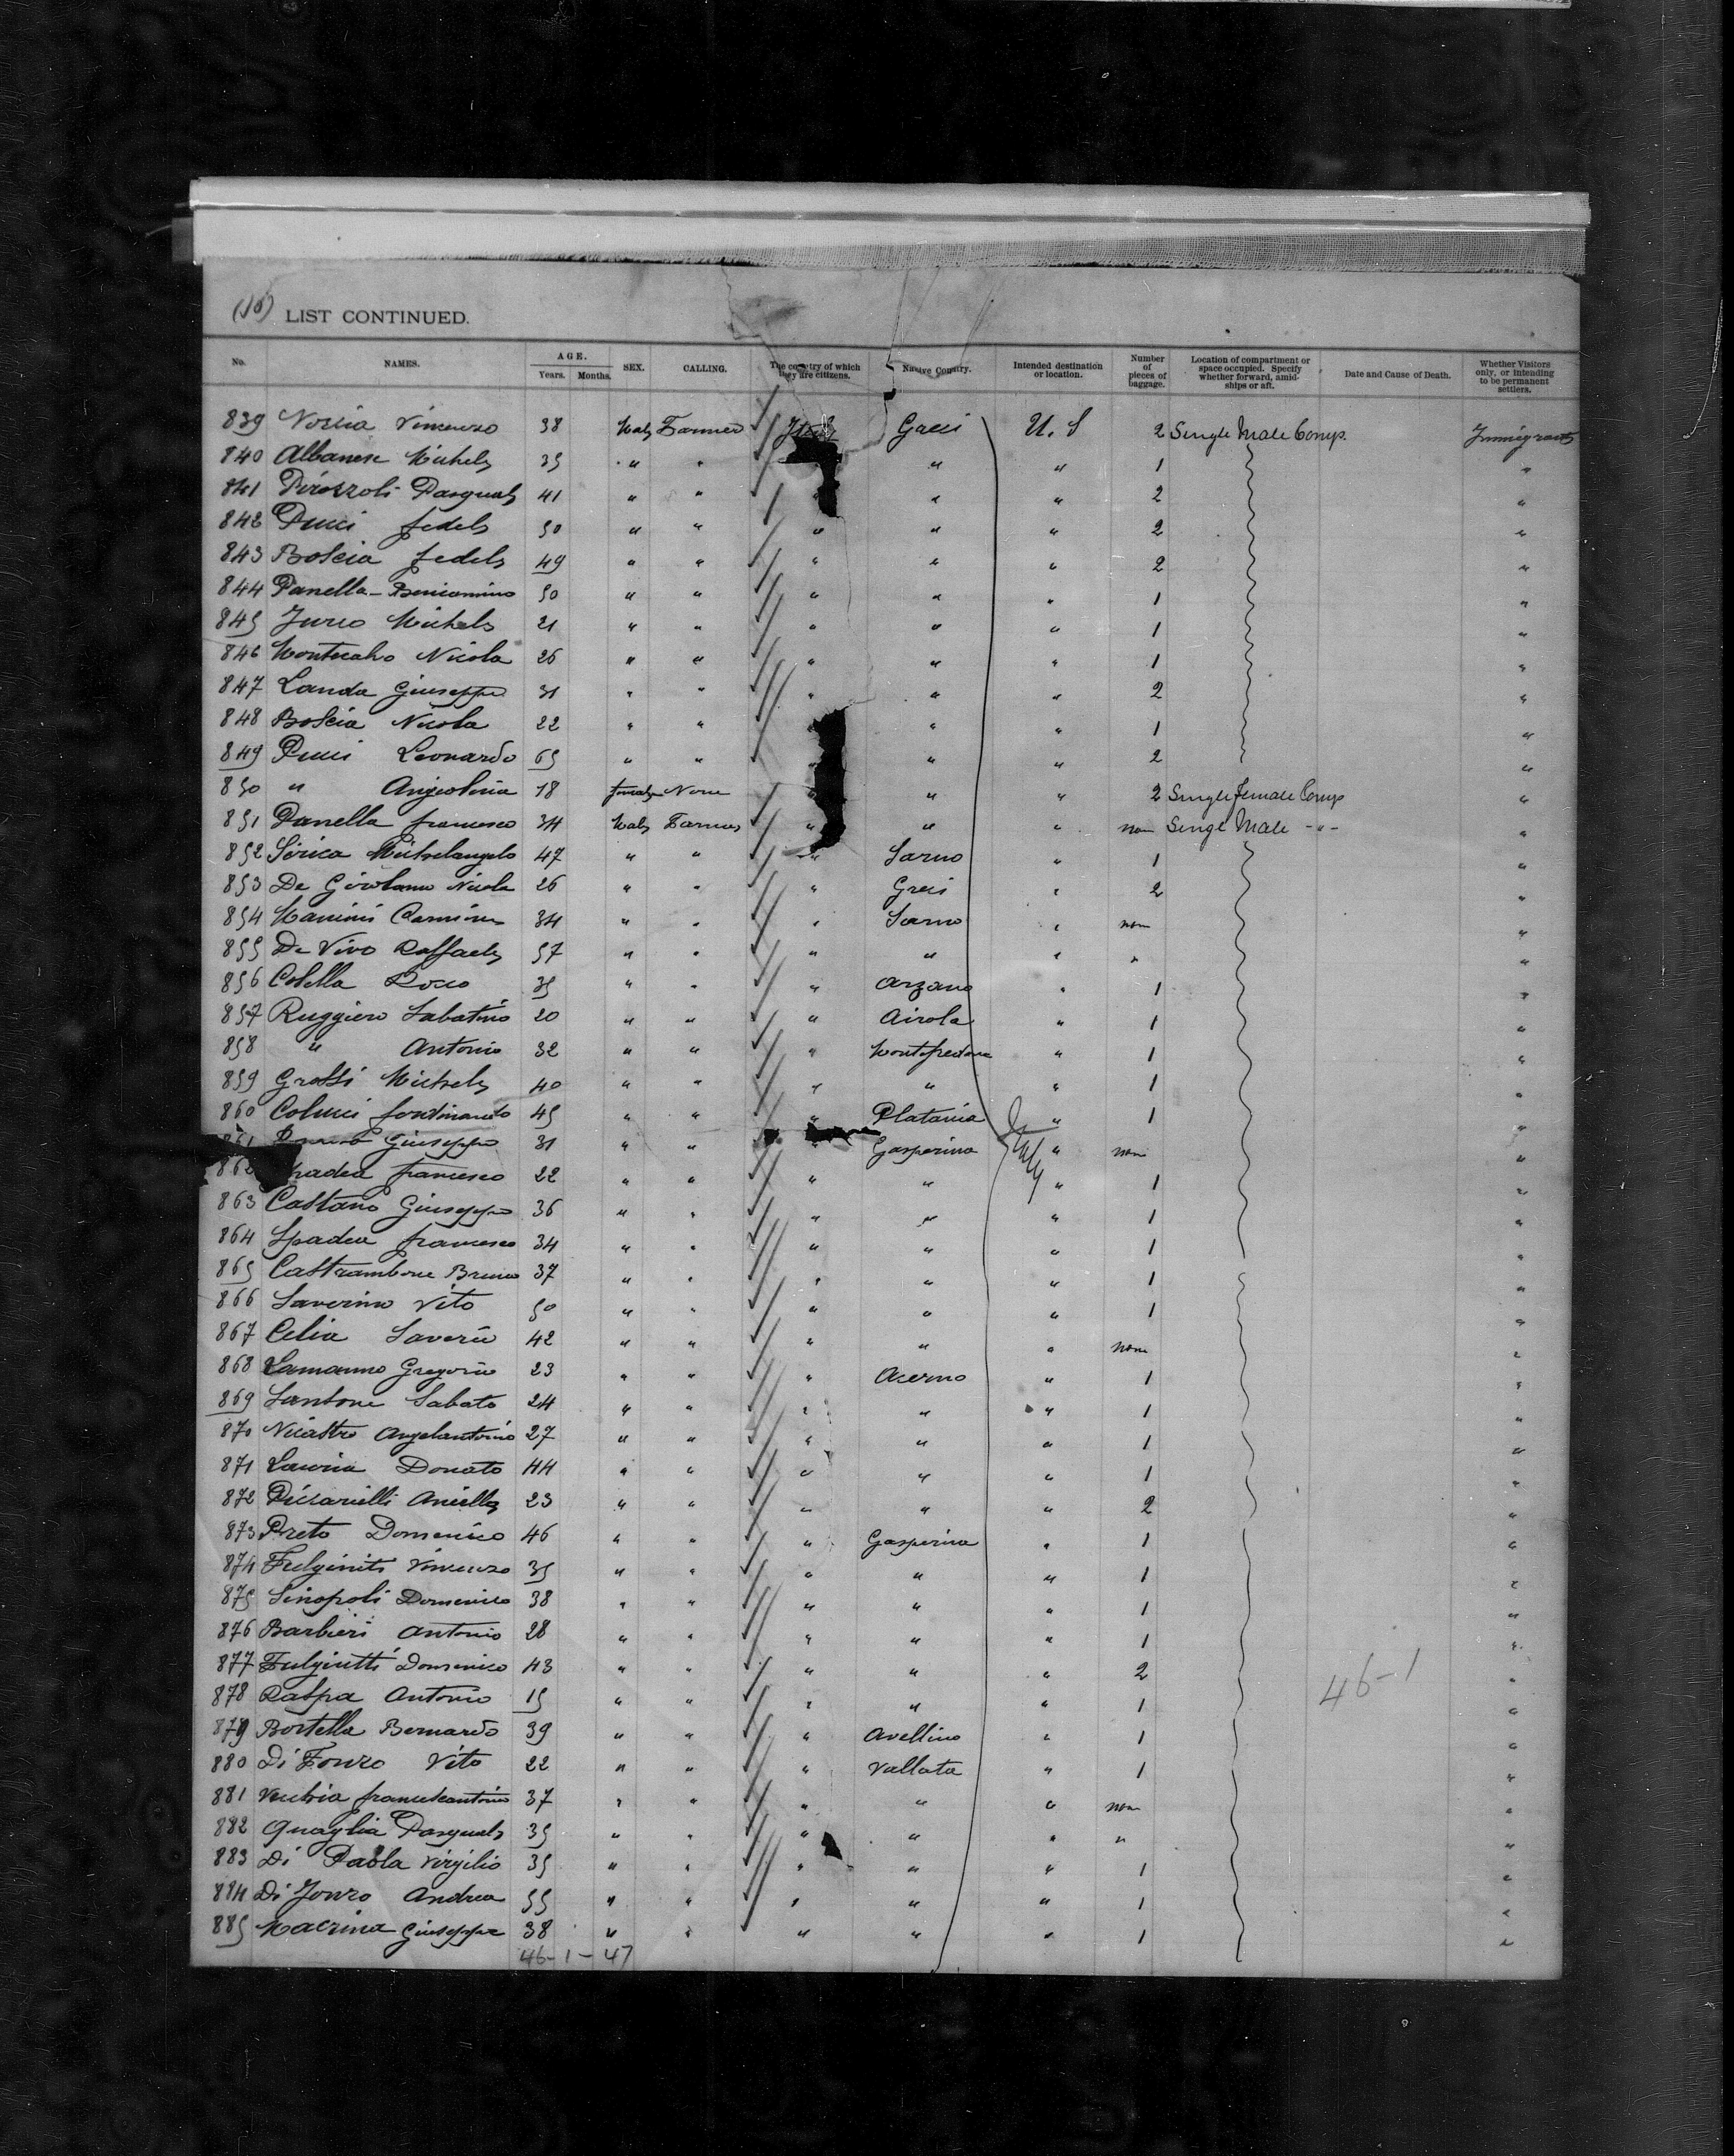 (16) LIST CONTINUED.
No. NAMES. AGE. Years. Months. SEX. CALLING. The country of which they are citizens. Native Country. Intended destination or location. Number of pieces of baggage. Location of compartment or space occupied. Specify whether forward, amidships or aft. Date and Cause of Death. Whether Visitors only, or intending to be permanent settlers.
839 Vincenzo 38 Male Farmer Italy Greci U. S 2 Single Male Comp. Immigrants
840 Albanese Michele 35 " " " " 1 "
841 Pirozzoli Pasquale 41 " " " " " 2 "
842 Pucci fedele 50 " " " " " 2 "
843 Boscia fedele 49 " " " " " 2 "
844 Panella Beniamino 50 " " " " " 1 "
845 Jurco Michele 21 " " " " " 1 "
846 Montecalvo Nicola 26 " " " " " 1 "
847 Landa Giuseppe 31 " " " " " 2 "
848 Boscia Nicola 22 " " " " 1 "
849 Pucci Leonardo 65 " " " " " 2 "
850 " Angiolina 18 female None " " " 2 Single female Comp "
851 Panella francesco 34 Male Farmer " " " non Single Male -"- "
852 Sirica Michelangelo 47 " " " Sarno " 1 "
853 De Girolamo Nicola 26 " " " Greci " 2 "
854 Mancini Carmine 34 " " " Sarno " non "
855 De Vivo Raffaele 57 " " " " " " "
856 Colella Rocco 35 " " " Arzano " 1 "
857 Ruggiero Sabatino 20 " " " Airola " 1 "
858 " Antonio 32 " " " Montefredane " 1 "
859 Grossi Michele 40 " " " " " 1 "
860 Colucci ferdinando 45 " " " Platania " 1 "
861 Giuseppe 31 " " " Gasperina Italy " non "
862 francesco 22 " " " " " 1 "
863 Castano Giuseppe 36 " " " " " 1 "
864 Spadea francesco 34 " " " " " 1 "
865 Castrambone Bruno 37 " " " " " 1 "
866 Saverino Vito 50 " " " " " 1 "
867 Celia Saverio 42 " " " " " non "
868 Lamanno Gregorio 23 " " " Acerno " 1 "
869 Santone Sabato 24 " " " " " 1 "
870 Nicastro Angelantonio 27 " " " " " 1 "
871 Lauria Donato 44 " " " " " 1 "
872 Aniello 23 " " " " " 2 "
873 Preto Domenico 46 " " " Gasperina " 1 "
874 Fulginiti Vincenzo 35 " " " " " 1 "
875 Sinopoli Domenico 38 " " " " " 1 "
876 Barbieri Antonio 28 " " " " " 1 "
877 Fulginitti Domenico 43 " " " " " 2 "
46-1
878 Raspa Antonio 15 " " " " " 1 "
879 Bortella Bernardo 39 " " " Avellino " 1 "
880 Di Fonzo Vito 22 " " " Vallata " 1 "
881 37 " " " " " non "
882 Quaglia Pasquale 35 " " " " " " "
883 Di Paola Virgilio 35 " " " " " 1 "
884 Di Fonzo Andrea 55 " " " " " 1 "
885 Macrina Giuseppe 38 " " " " " 1 "
46-1-47